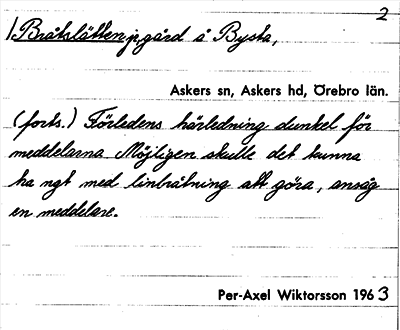 2
Bråtslätten, gård å Bysta,
Askers sn, Askers hd, Örebro län.
(forts.) Förledens härledning dunkel för
meddelarna. Möjligen skulle det kunna
ha ngt med linbråtning att göra, ansåg
en meddelare.
Per-Axel Wiktorsson 1963